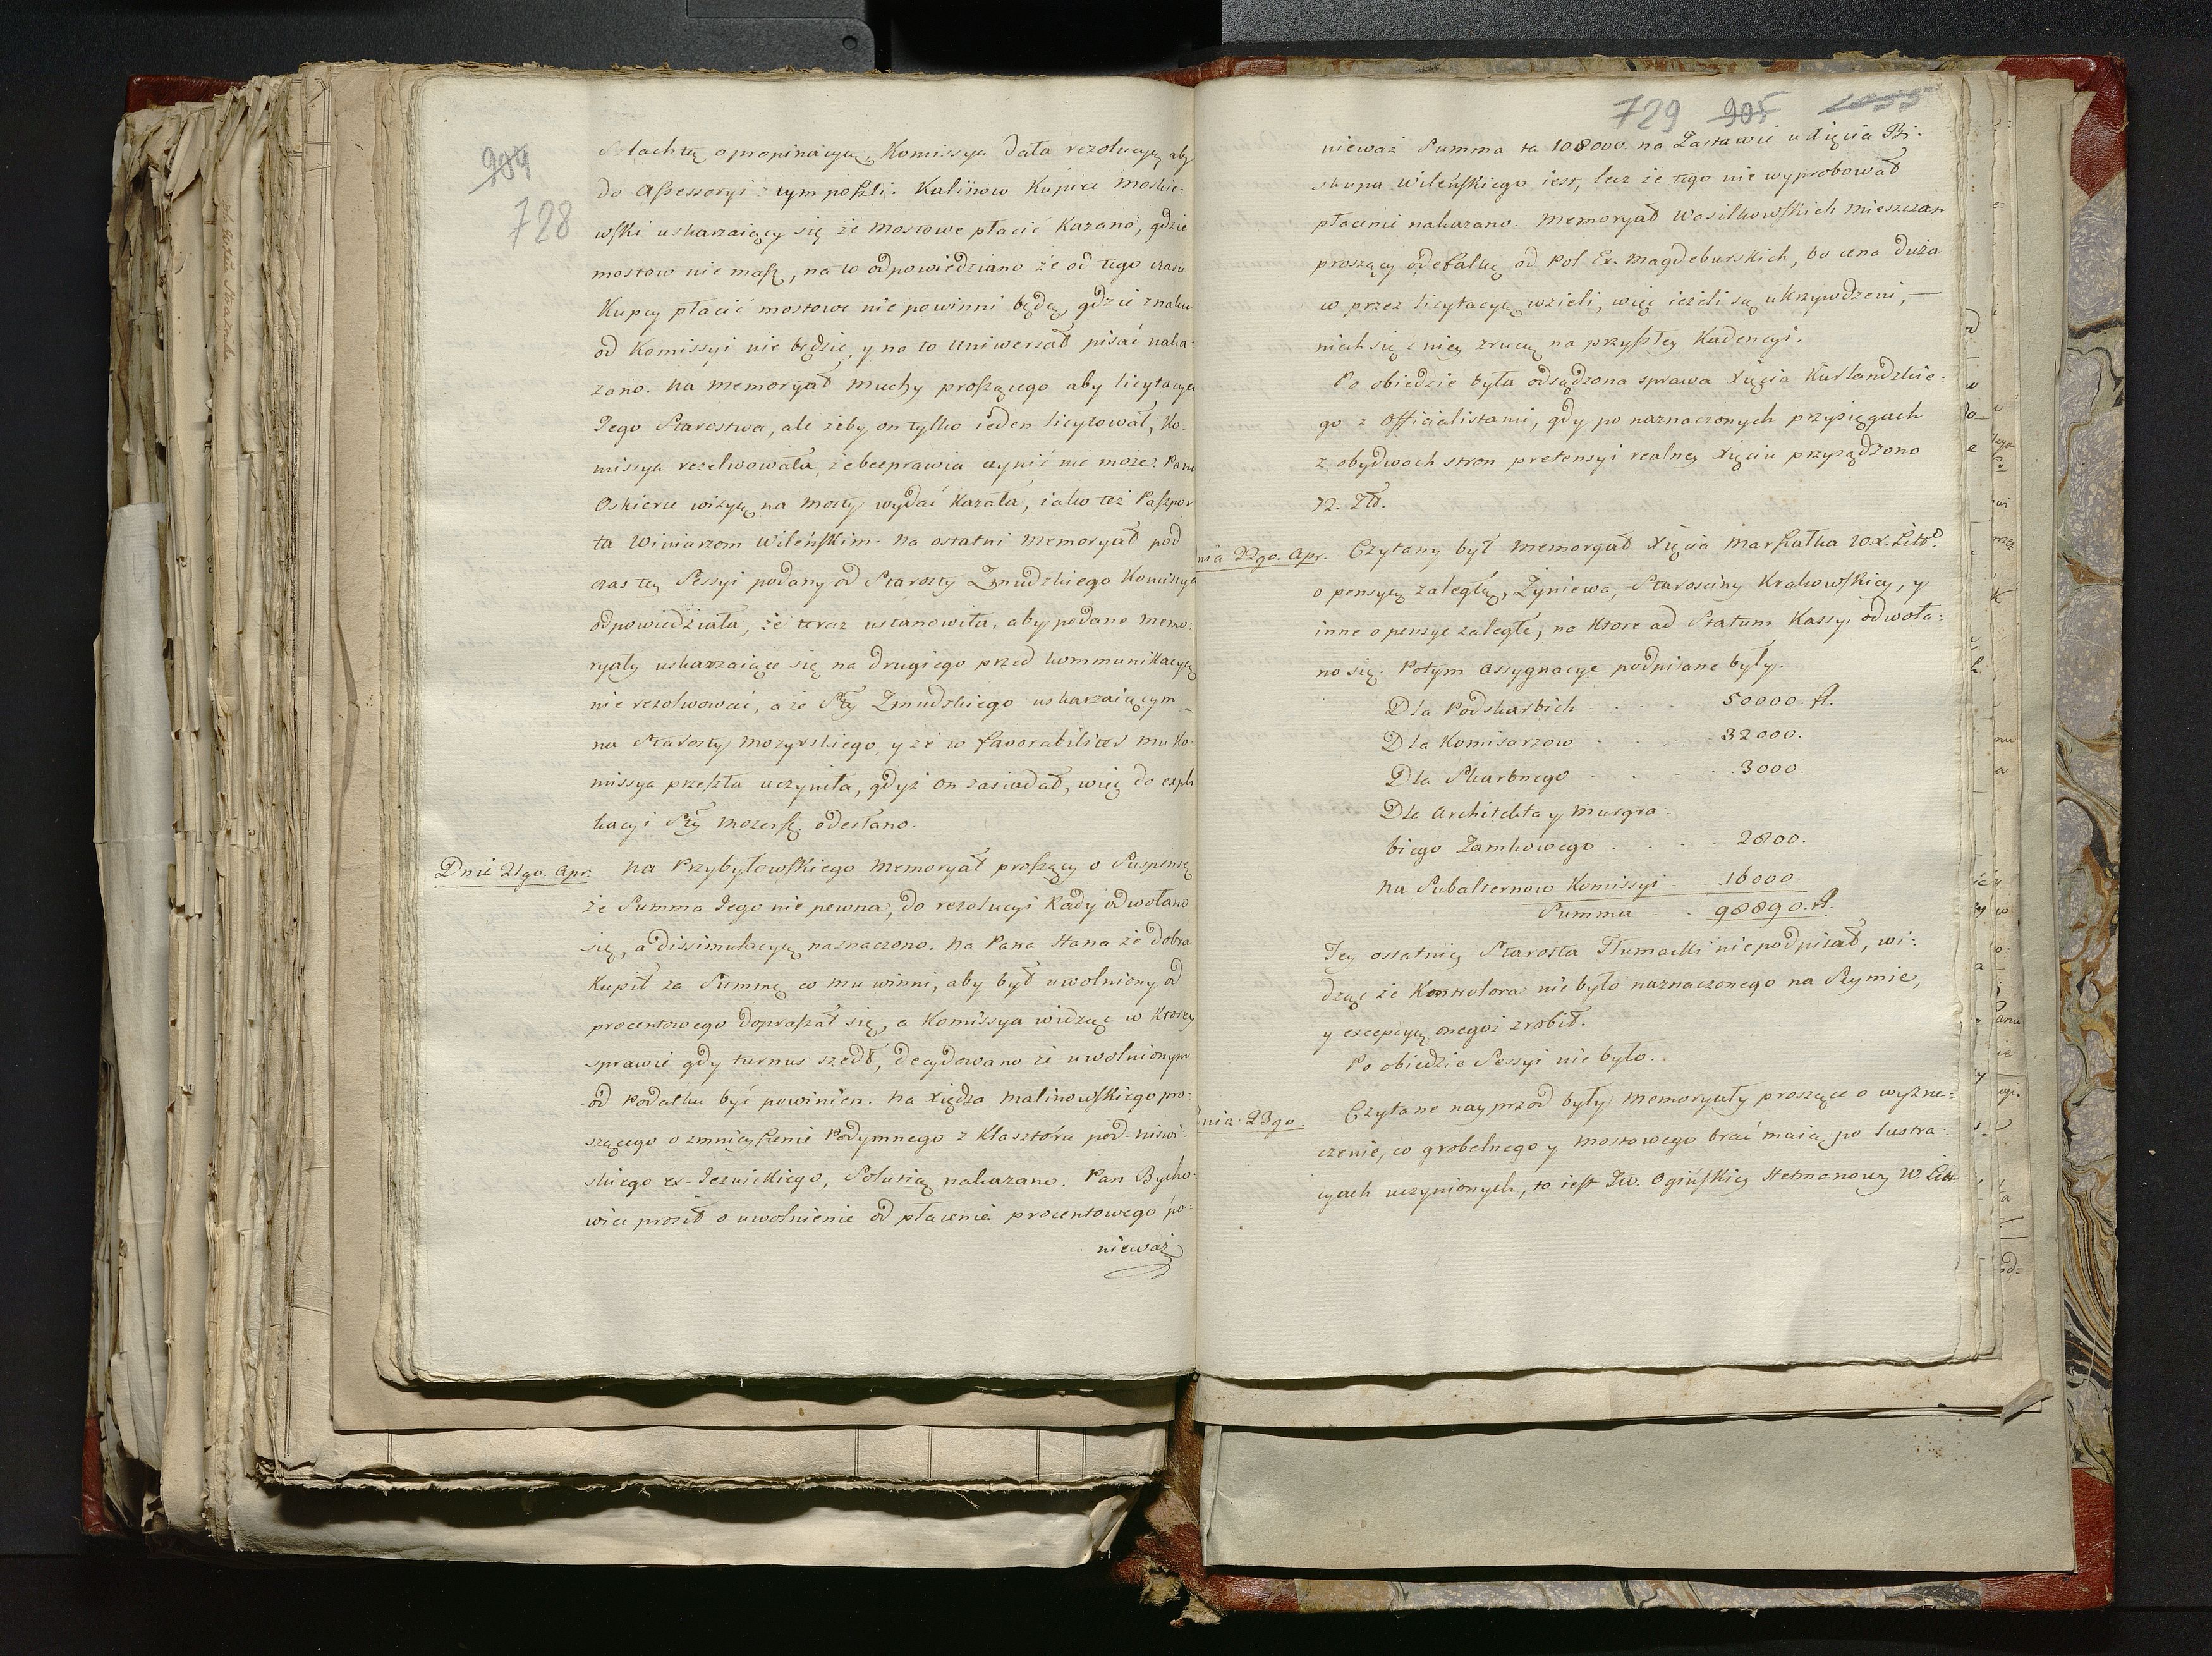 904
728
Szlachtą o propinacyą, Komissya dała rezolucyą aby
do Assessoryi z tym poszli. Kalinow Kupiec Moskie:
wski uskarzaiący się że mostowe płacić Kazano, gdzie
mostow nie masz, na to odpowiedziano że od tego czasu
Kupcy płacić mostowe nie powinni będą, gdzie znaku
od Komissyi nie będzie, y na to Uniwersał pisać naka-
zano. Na Memoryał Muchy proszącego aby licytacya
Jego Starostwa, ale żeby on tylko ieden licytował, Ko.
missya rezolwowała, że bezprawia czynić nie może. Panu
Oskierce wizyą na mosty wydać Kazała, iako też Paszpor
ta Winiarzom Wileńskim. Na ostatni Memoryał pod
czas tey Sessyi podany od Starosty Zmudzkiego Komissya
odpowiedziała, że teraz ustanowiła, aby podane memo:
ryały uskarzaiące się na drugiego przed kommunikacyą
nie rezolwować, a że Sty Zmudzkiego uskarzaiącym
na Starosty Mozyrskiego, y że w favorabilites mu Ko.
missya przeszła uczyniła, gdyż on zasiadał, więc do expli
kacyi Sty Mozersk. odesłano.
Dnia 21go. Apr. Na Przybyłowskiego Memoryał proszący o Suspensę
że Summa Jego nie pewna, do rezolucyi Rady odwołano
się, a dissimulacyą naznaczono. Na Pana Hana że dobra
Kupił za Summę co mu winni, aby był uwolniony od
procentowego dopraszał się, a Komissya widząc w Ktorey
sprawie gdy turnus szedł, decydowano że uwolnionym
od Podatku być powinien. Na Xiędza Malinowskiego pro:
szącego o zmnieyszenie Podymnego z Klasztoru pod-niswi:
skiego ex-Jezuickiego, Solutią nakazano. Pan Bycho-
wiec prosił o uwolnienie od płacenia procentowego po:
nieważ
729 905 1055
nieważ Summa ta 108000. na Zastawie u Xięcia Bi:
skupa Wileńskiego iest, lecz że tego nie wyprobował
płacenie nakazano. Memoryał Wasilkowskich Mieszczan
proszący o defalkę od Pol Ex. Magdeburskich, bo cena duża
w przez licytacyą wzieli, więc ieżeli są ukrzywdzeni,
niech się z niey zrucą na przyszłey Kadencyi.
Po obiedzie była odsądzona sprawa Xięcia Kurlandzkie:
go z Officialistami, gdy po naznaczonych przysięgach
z obydwoch stron pretensyi realney Xięciu przysądzono
72. Zło.
nia 22go. Apr. Czytany był Memoryał Xięcia Marszałka W.X. Litt.
o pensyą zaległą, Zyniewa, Starosciny Krakowskiey, y
inne o pensye zaległe, na Ktore ad Statum Kassy, odwoła:
no się. Potym Assygnacye podpisane były.
Dla Podskarbich - - - - 50000. fl.
Dla Komisarzow - - - 32000.
Dla Skarbnego - - - - 3000.
Dla Architekta y Murgra:
biego Zamkowego - - - 2800.
Na Subalternow Komissyi - - 16000.
Summa - - 98890. fl.
Tey ostatniey Starosta Tłumacki nie podpisał, wi:
dząc że Kontrolora nie było naznaczonego na Seymie,
y excepcyą onegoż zrobił.
Po obiedzie Sessyi nie było.
nia 23go. Czytane nayprzod były Memoryały proszące o wyzna:
czenie, co grobelnego y mostowego brać maią po lustra:
cyach uczynionych, to iest Jw. Ogińskiey Hetmanowy W. Litt.